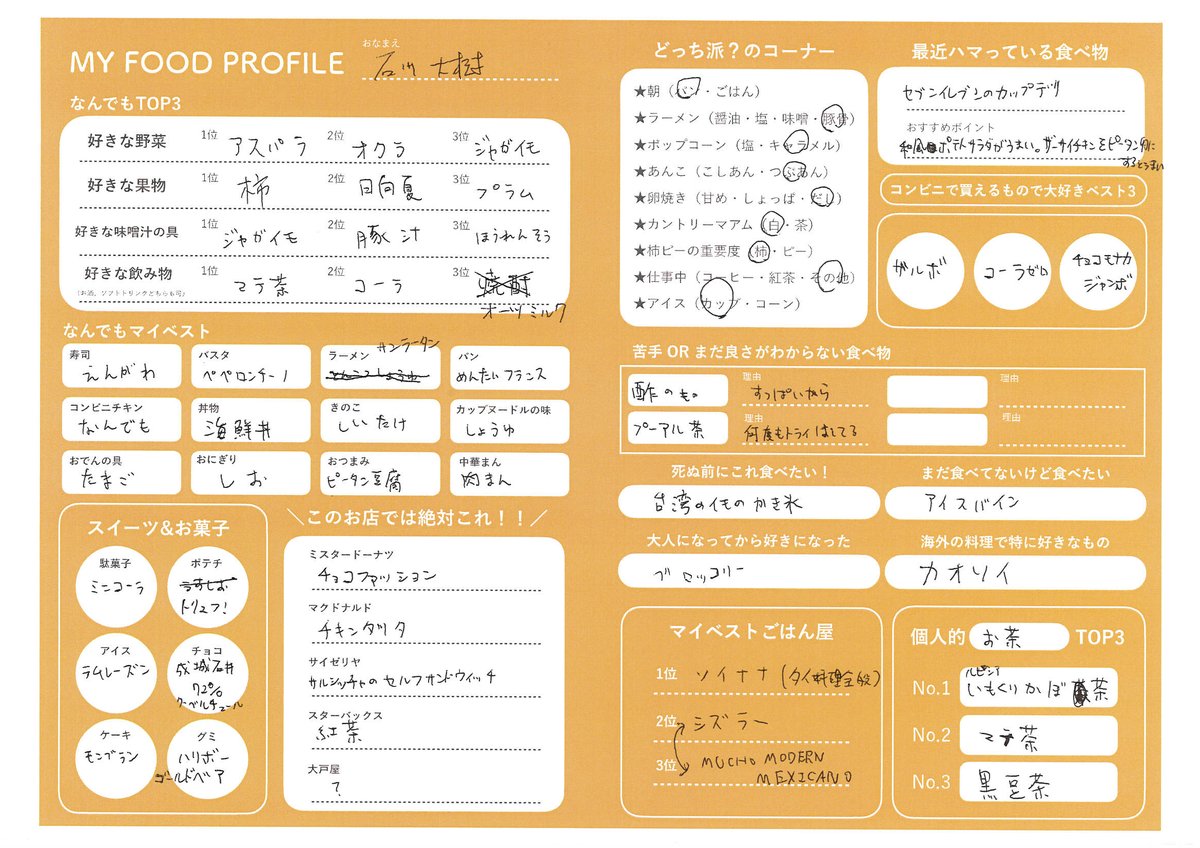 MY FOOD PROFILE
おなまえ
石川 大樹
なんでもTOP3
好きな野菜 1位 アスパラ 2位 オクラ 3位 ジャガイモ
好きな果物 1位 柿 2位 日向夏 3位 プラム
好きな味噌汁の具 1位 ジャガイモ 2位 豚汁 3位 ほうれんそう
好きな飲み物 1位 マテ茶 2位 コーラ 3位 焼酎
(お酒、ソフトドリンクどちらも可)
オーツミルク
なんでもマイベスト
寿司 えんがわ
パスタ ペペロンチーノ
ラーメン サンラータン
とんこつしょうゆ
パン めんたいフランス
コンビニチキン なんでも
丼物 海鮮丼
きのこ しいたけ
カップヌードルの味 しょうゆ
おでんの具 たまご
おにぎり しお
おつまみ ピータン豆腐
中華まん 肉まん
スイーツ&お菓子
駄菓子 ミニコーラ
ポテチ うすしお
トリュフ!
アイス ラムレーズン
チョコ 成城石井
72%
クーベルチュール
ケーキ モンブラン
グミ ハリボー
ゴールドベア
＼このお店では絶対これ！！／
ミスタードーナツ
チョコファッション
マクドナルド
チキンタツタ
サイゼリヤ
サルシッチャのセルフサンドウィッチ
スターバックス
紅茶
大戸屋
?
どっち派？のコーナー
★朝（パン・ごはん）
★ラーメン（醤油・塩・味噌・豚骨）
★ポップコーン（塩・キャラメル）
★あんこ（こしあん・つぶあん）
★卵焼き（甘め・しょっぱ・だし）
★カントリーマアム（白・茶）
★柿ピーの重要度（柿・ピー）
★仕事中（コーヒー・紅茶・その他）
★アイス（カップ・コーン）
最近ハマっている食べ物
セブンイレブンのカップデリ
おすすめポイント
和風ポテトサラダがうまい。ザーサイチキンをピータンダレに
するとうまい
コンビニで買えるもので大好きベスト3
ガルボ
コーラゼロ
チョコモナカ
ジャンボ
苦手 OR まだ良さがわからない食べ物
酢のもの 理由 すっぱいから 理由
プーアル茶 理由 何度もトライはしてる 理由
死ぬ前にこれ食べたい！
台湾のイモのかき氷
まだ食べてないけど食べたい
アイスバイン
大人になってから好きになった
ブロッコリー
海外の料理で特に好きなもの
カオソイ
マイベストごはん屋
1位 ソイナナ (タイ料理全般)
2位 シズラー
3位 MUCHO MODERN
MEXICANO
個人的 お茶 TOP3
No.1 ルピシア
いもくりかぼ茶
No.2 マテ茶
No.3 黒豆茶